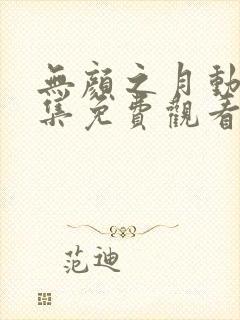 無顏之月動
集免費觀看
范迪